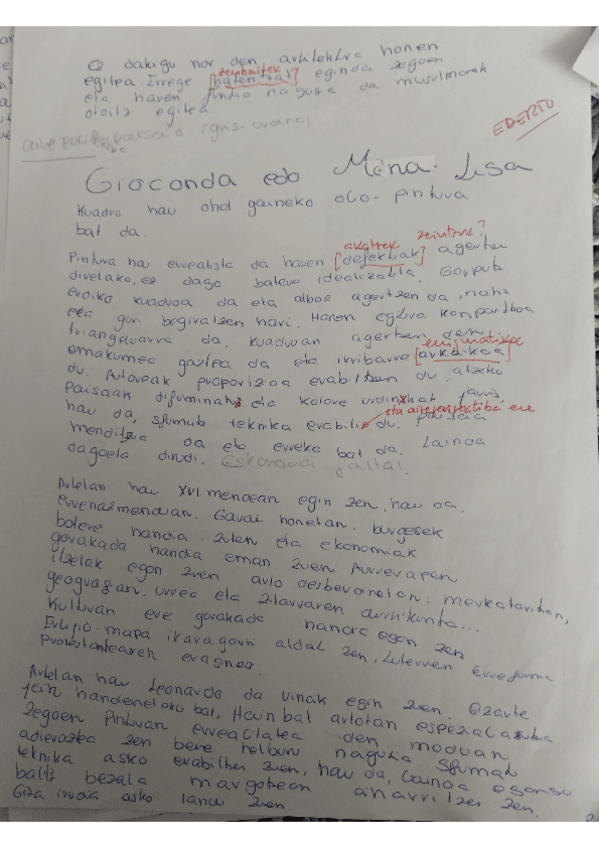 Ez dakigu nor den arkitektura honen
zenbaitek
egilea. Errege [batentzat] eginda zegoen
eta haren funtzio nagusia da musulmanak
otoitz egitea
aire paisaia (gris-urana)
EDERTO
Gioconda edo Mona-Lisa
Kuadro hau ohol gaineko olio-pintura
bat da.
akatsek zeintzuk?
Pintura hau errealista da haren [defektuak] agertzen
direlako, ez dago batere idealizatuta. Gorputz
erdiko kuadroa da eta albos agertzen da, nahiz
eta guri begiratzen nari. Honen egitura konpartiboa
triangeluarra da. Kuadroan agertzen den
enigmatikoa
emakumea gaztea da eta irribarre [arkaikoa]
du. Autoreak proportzioa erabiltzen du. atzeko
Paisaian difuminatu eta kolore urdinxkat jarriz,
eta aire perspektiba ere
hau da, sfumato teknika erabiliz du. Paisaia
menditsua da eta erreka bat da. Lainoa
dagoela dirudi. Eskongaua faltal.
Artelan hau XVI mendean egin zen, hau da,
errenazimenduan. Garai honetan, burgesek
botere handia zuten eta ekonomiak
gorakada handia eman zuen. Aurrerapen
itzelak egon ziren arlo desberdinetan: merkataritzan,
geografian, urrea eta zilarraren aurkikuntza...
Kulturan ere gorakada handia egon zen
Erlijio-mapa ikaragarri aldatu zen, Luteroren Erreforma
protestantearen eraginez.
Artelan hau Leonardo da Vincik egin zuen. Gizarte
jein handienetako bat. Hainbat arlotan espezializatuta
zegoen. Pinturan errealitatea den moduan
adieraztea zen bere helburu nagusia. Sfumato
teknika asko erabiltzen zuen, hau da, lainoa egongo
balitz bezala margotzean aharritzen zen.
Giza irudia asko landu zuen.